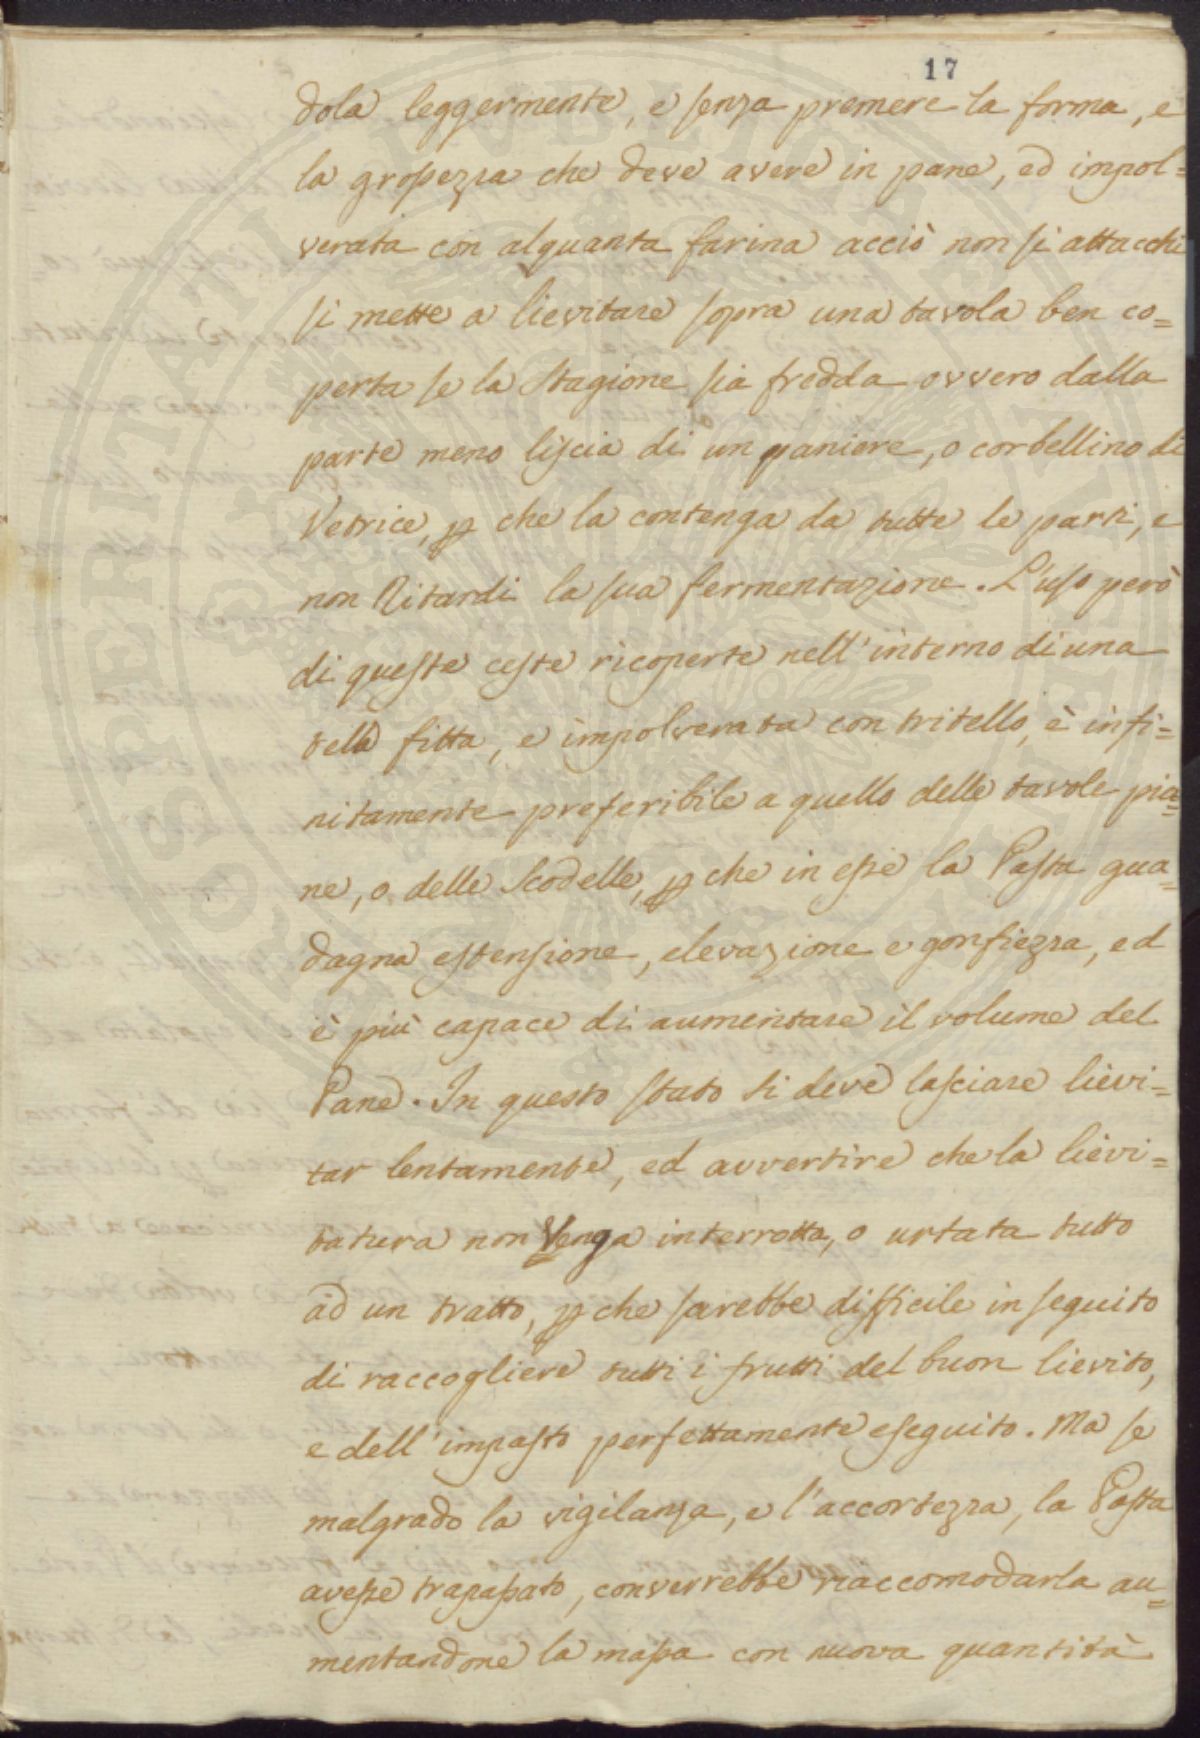 17
dola leggermente, e senza premere la forma, e
la grossezza che deve avere in pane, ed impol=
verata con alquanta farina acciò non si attacchi
si mette a lievitare sopra una tavola ben co=
perta se la Stagione sia fredda ovvero dalla
parte meno liscia di un paniere, o corbellino di
Vetrice, p che la contenga da tutte le parti, e
non Ritardi la sua fermentazione. L'uso però
di queste ceste ricoperte nell'interno di una
tela fitta, e impolverata con tritello, è infi=
nitamente preferibile a quello delle tavole pia=
ne, o delle Scodelle, p che in esse la Pasta gua=
dagna estensione, elevazione e gonfiezza, ed
è più capace di aumentare il volume del
Pane. In questo stato si deve lasciare lievi=
tar lentamente, ed avvertire che la lievi=
tatura non Venga interrotta, o urtata tutto
ad un tratto, p che sarebbe difficile in seguito
di raccogliere tutti i frutti del buon lievito,
e dell'impasto perfettamente eseguito. Ma se
malgrado la vigilanza, e l'accortezza, la Pasta
avesse trapassato, converrebbe raccomodarla au=
mentandone la massa con nuova quantità
PROSPERITATI PUBLICAE AUGENDAE